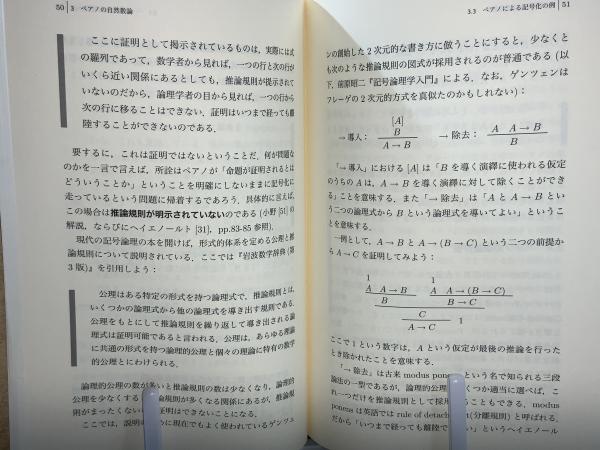 50 3 ペアノの自然数論
ここに証明として掲示されているものは，実際には式
の羅列であって，数学者から見れば，一つの行と次の行が
いくら近い関係にあるとしても，推論規則が提示されて
いないのだから，論理学者の目から見れば，一つの行から
次の行に移ることはできない．証明はいつまで経っても離
陸することができないのである．
要するに，これは証明ではないということだ．何が問題な
のかを一言で言えば，所詮はペアノが「命題が証明されるとは
どういうことか」ということを明確にしないままに記号化に
走っているという問題に帰着するであろう．具体的に言えば，
この場合は推論規則が明示されていないのである (小野 [51] の
解説，ならびにヘイエノールト [31]，pp.83-85 参照)．
現代の記号論理の本を開けば，形式的体系を定める公理と推
論規則について説明されている．ここでは『岩波数学辞典 (第
3 版)』を引用しよう：
公理はある特定の形式を持つ論理式で，推論規則とは，
いくつかの論理式から他の論理式を導き出す規則である．
公理をもとにして推論規則を繰り返して導き出される論
理式は証明可能であると言われる．公理は，あらゆる理論
に共通の形式を持つ論理的公理と個々の理論に特有の数学
的公理とにわけられる．
論理的公理の数が多いと推論規則の数は少なくなり，論理的
公理を少なくする 論規則が多くなる関係にあるが，推論規
則がまったくない 証明はできないことになる．
ここでは，説明の めに現在でもよく使われているゲンツェ
3.3 ペアノによる記号化の例 51
ンの創始した 2 次元的な書き方に倣うことにすると，少なくと
も次のような推論規則の図式が採用されるのが普通である (以
下，前原昭二『記号論理学入門』による．なお，ゲンツェンは
フレーゲの 2 次元的方式を真似たのかもしれない)：
[A]
→導入： B →除去： A A→B
A→B B
「→導入」における [A] は「B を導く演繹に使われる仮定
のうちの A は，A→B を導く演繹に対して除くことができ
る」ことを意味する．また「→除去」は「A と A→B とい
う二つの論理式から B という論理式を導いてよい」というこ
とを意味する．
一例として，A→B と A→(B→C) という二つの前提か
ら A→C を証明してみよう：
1 1
A A→B A A→(B→C)
B B→C
C
A→C 1
ここで 1 という数字は，A という仮定が最後の推論を行った
とき除かれたことを意味する．
「→除去」は古来 modus ponens という名で知られる三段
論法の一型であるが，論理的公理 くつか適当に選べば，こ
れ一つだけを推論規則として採 ることもできる．modus
ponens は英語では rule of detach (分離規則) と呼ばれる．
だから「いつまで経っても離陸で い」というヘイエノール